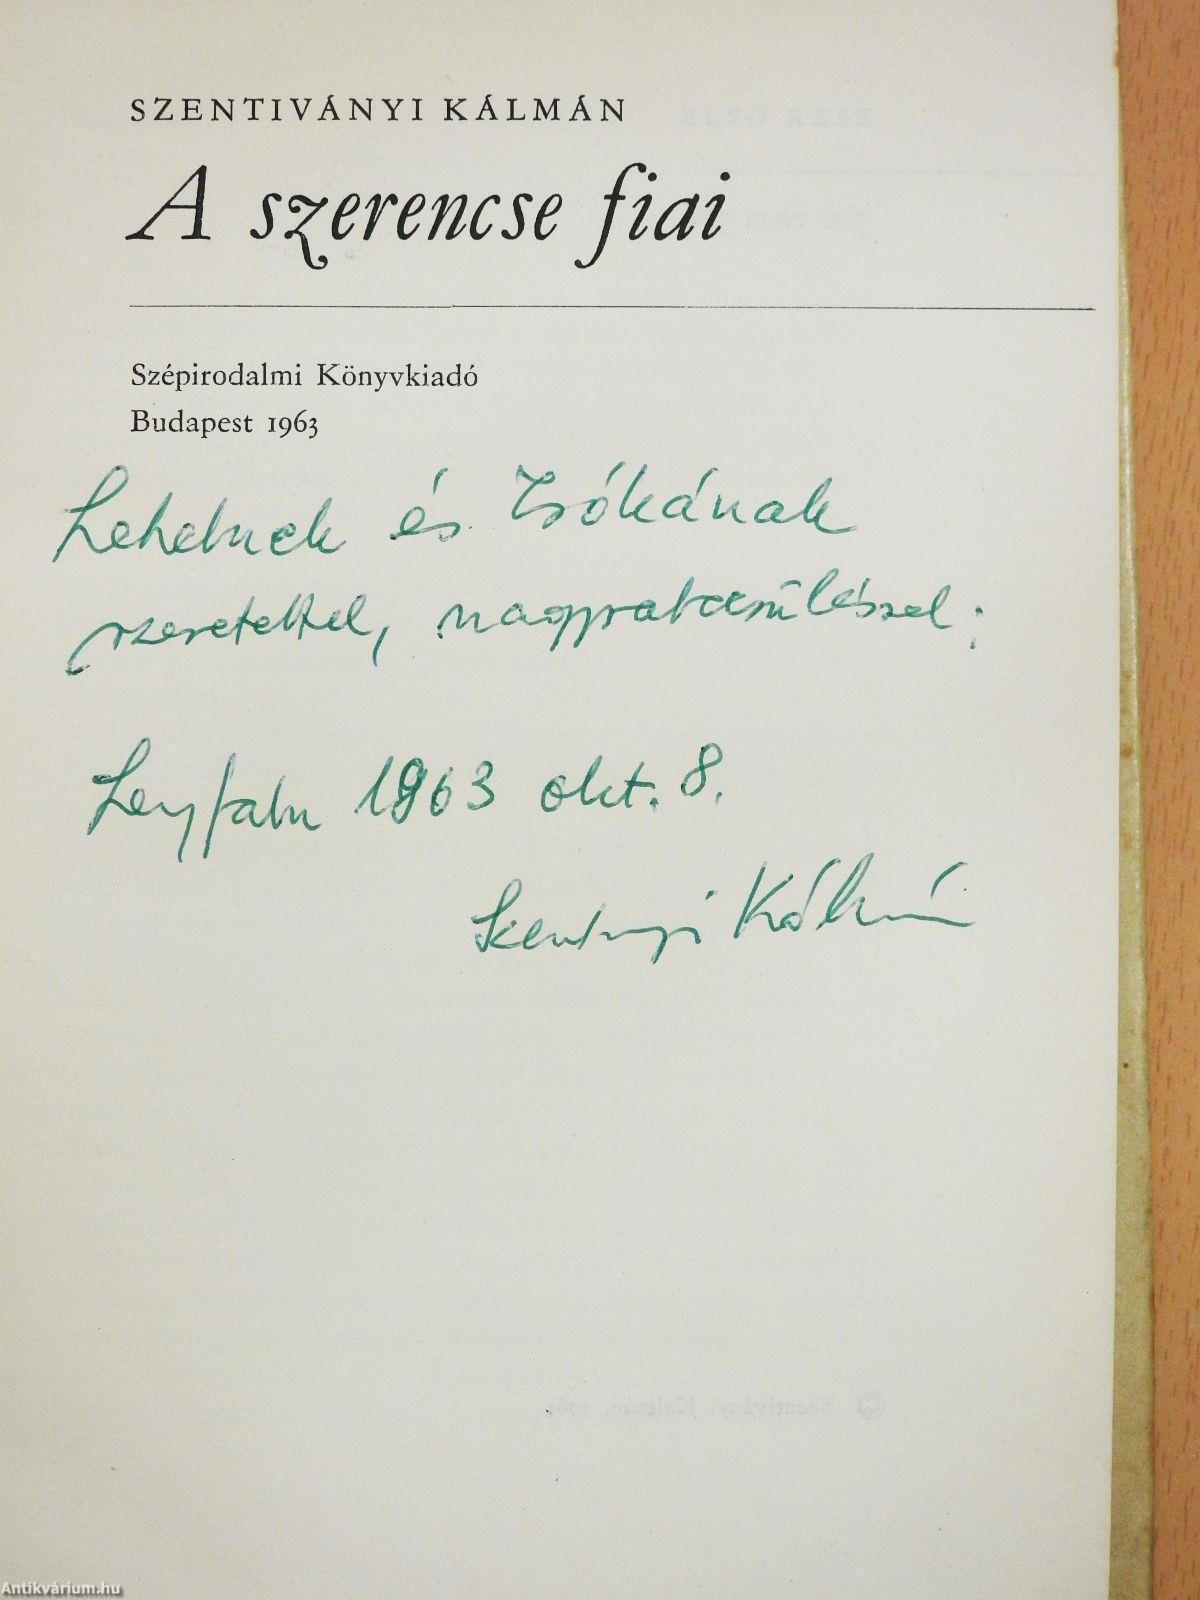 SZENTIVÁNYI KÁLMÁN
A szerencse fiai
Szépirodalmi Könyvkiadó
Budapest 1963
Lehelnek és Zsókának
szeretettel, nagyrabecsüléssel:
1963 okt. 8.
Szentiványi Kálmán
ELSŐ RÉSZ
© Szentiványi Kálmán, 1963
Antikvárium.hu